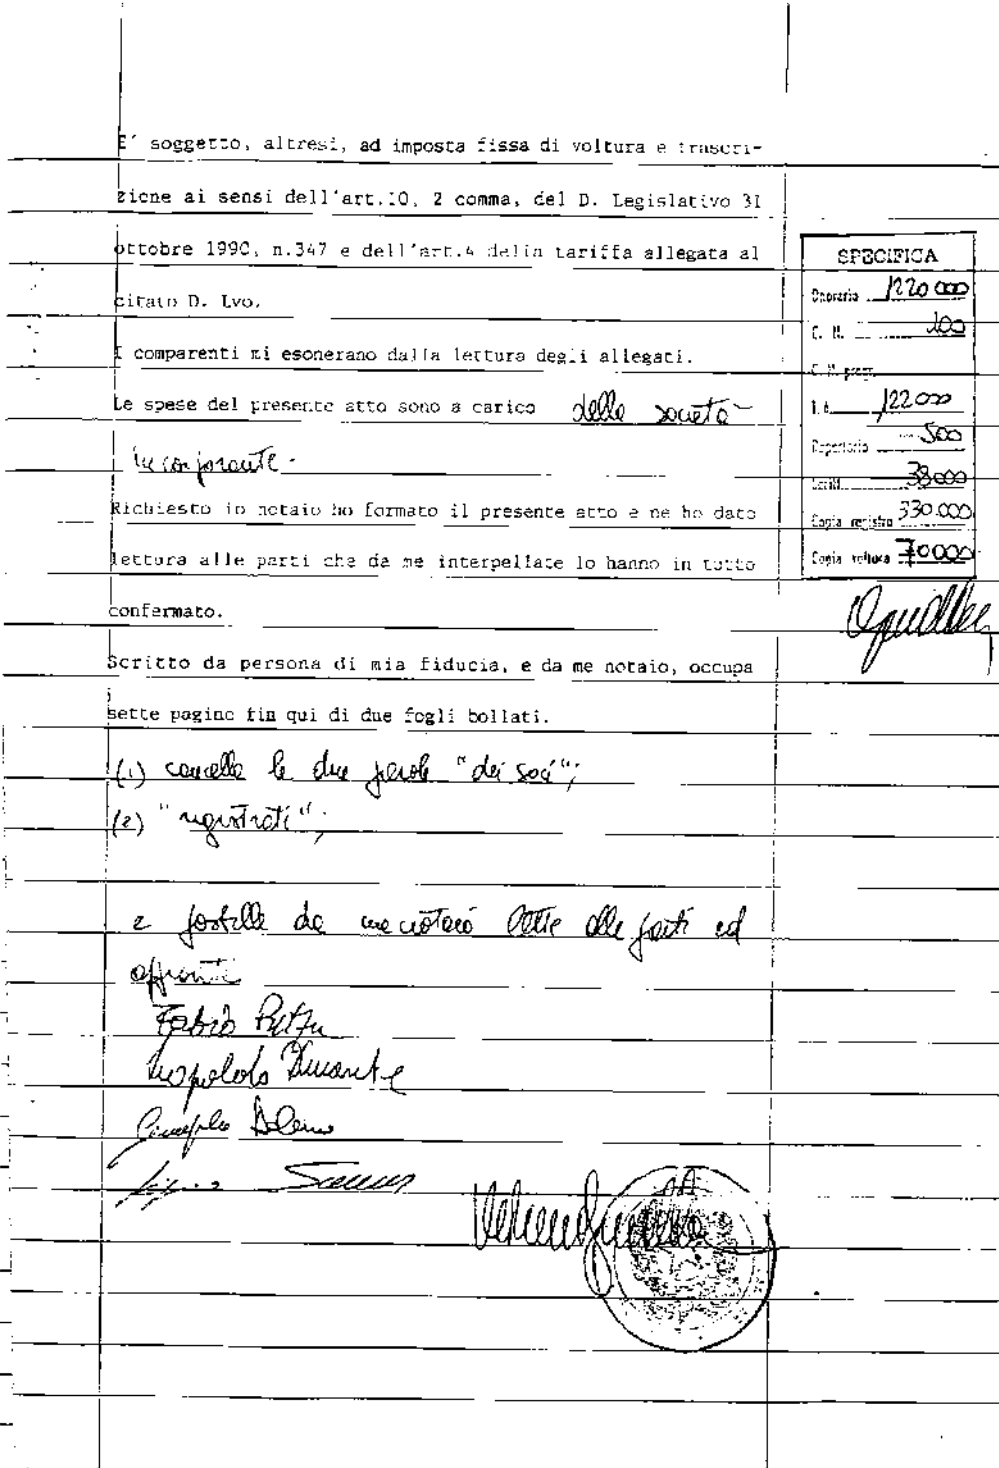 E' soggetto, altresì, ad imposta fissa di voltura e trascri-
zione ai sensi dell'art.10, 2 comma, del D. Legislativo 31
ottobre 1990, n.347 e dell'art.4 della tariffa allegata al
citato D. Lvo.
I comparenti mi esonerano dalla lettura degli allegati.
Le spese del presente atto sono a carico della società
incorporante.
Richiesto io notaio ho formato il presente atto e ne ho dato
lettura alle parti che da me interpellate lo hanno in tutto
confermato.
Scritto da persona di mia fiducia, e da me notaio, occupa
sette pagine fin qui di due fogli bollati.
(1) cancella le due parole "dei soci";
(2) "registrati";
2 postille da me notaio lette alle parti ed
approvate
Fabio
Leopoldo Durante
SPECIFICA
Onorario 1220 000
C. N. 100
C. N. prog.
T. A. 122 000
Repertorio 500
Scritt. 38000
Copia registro 330.000
Copia voltura 70000